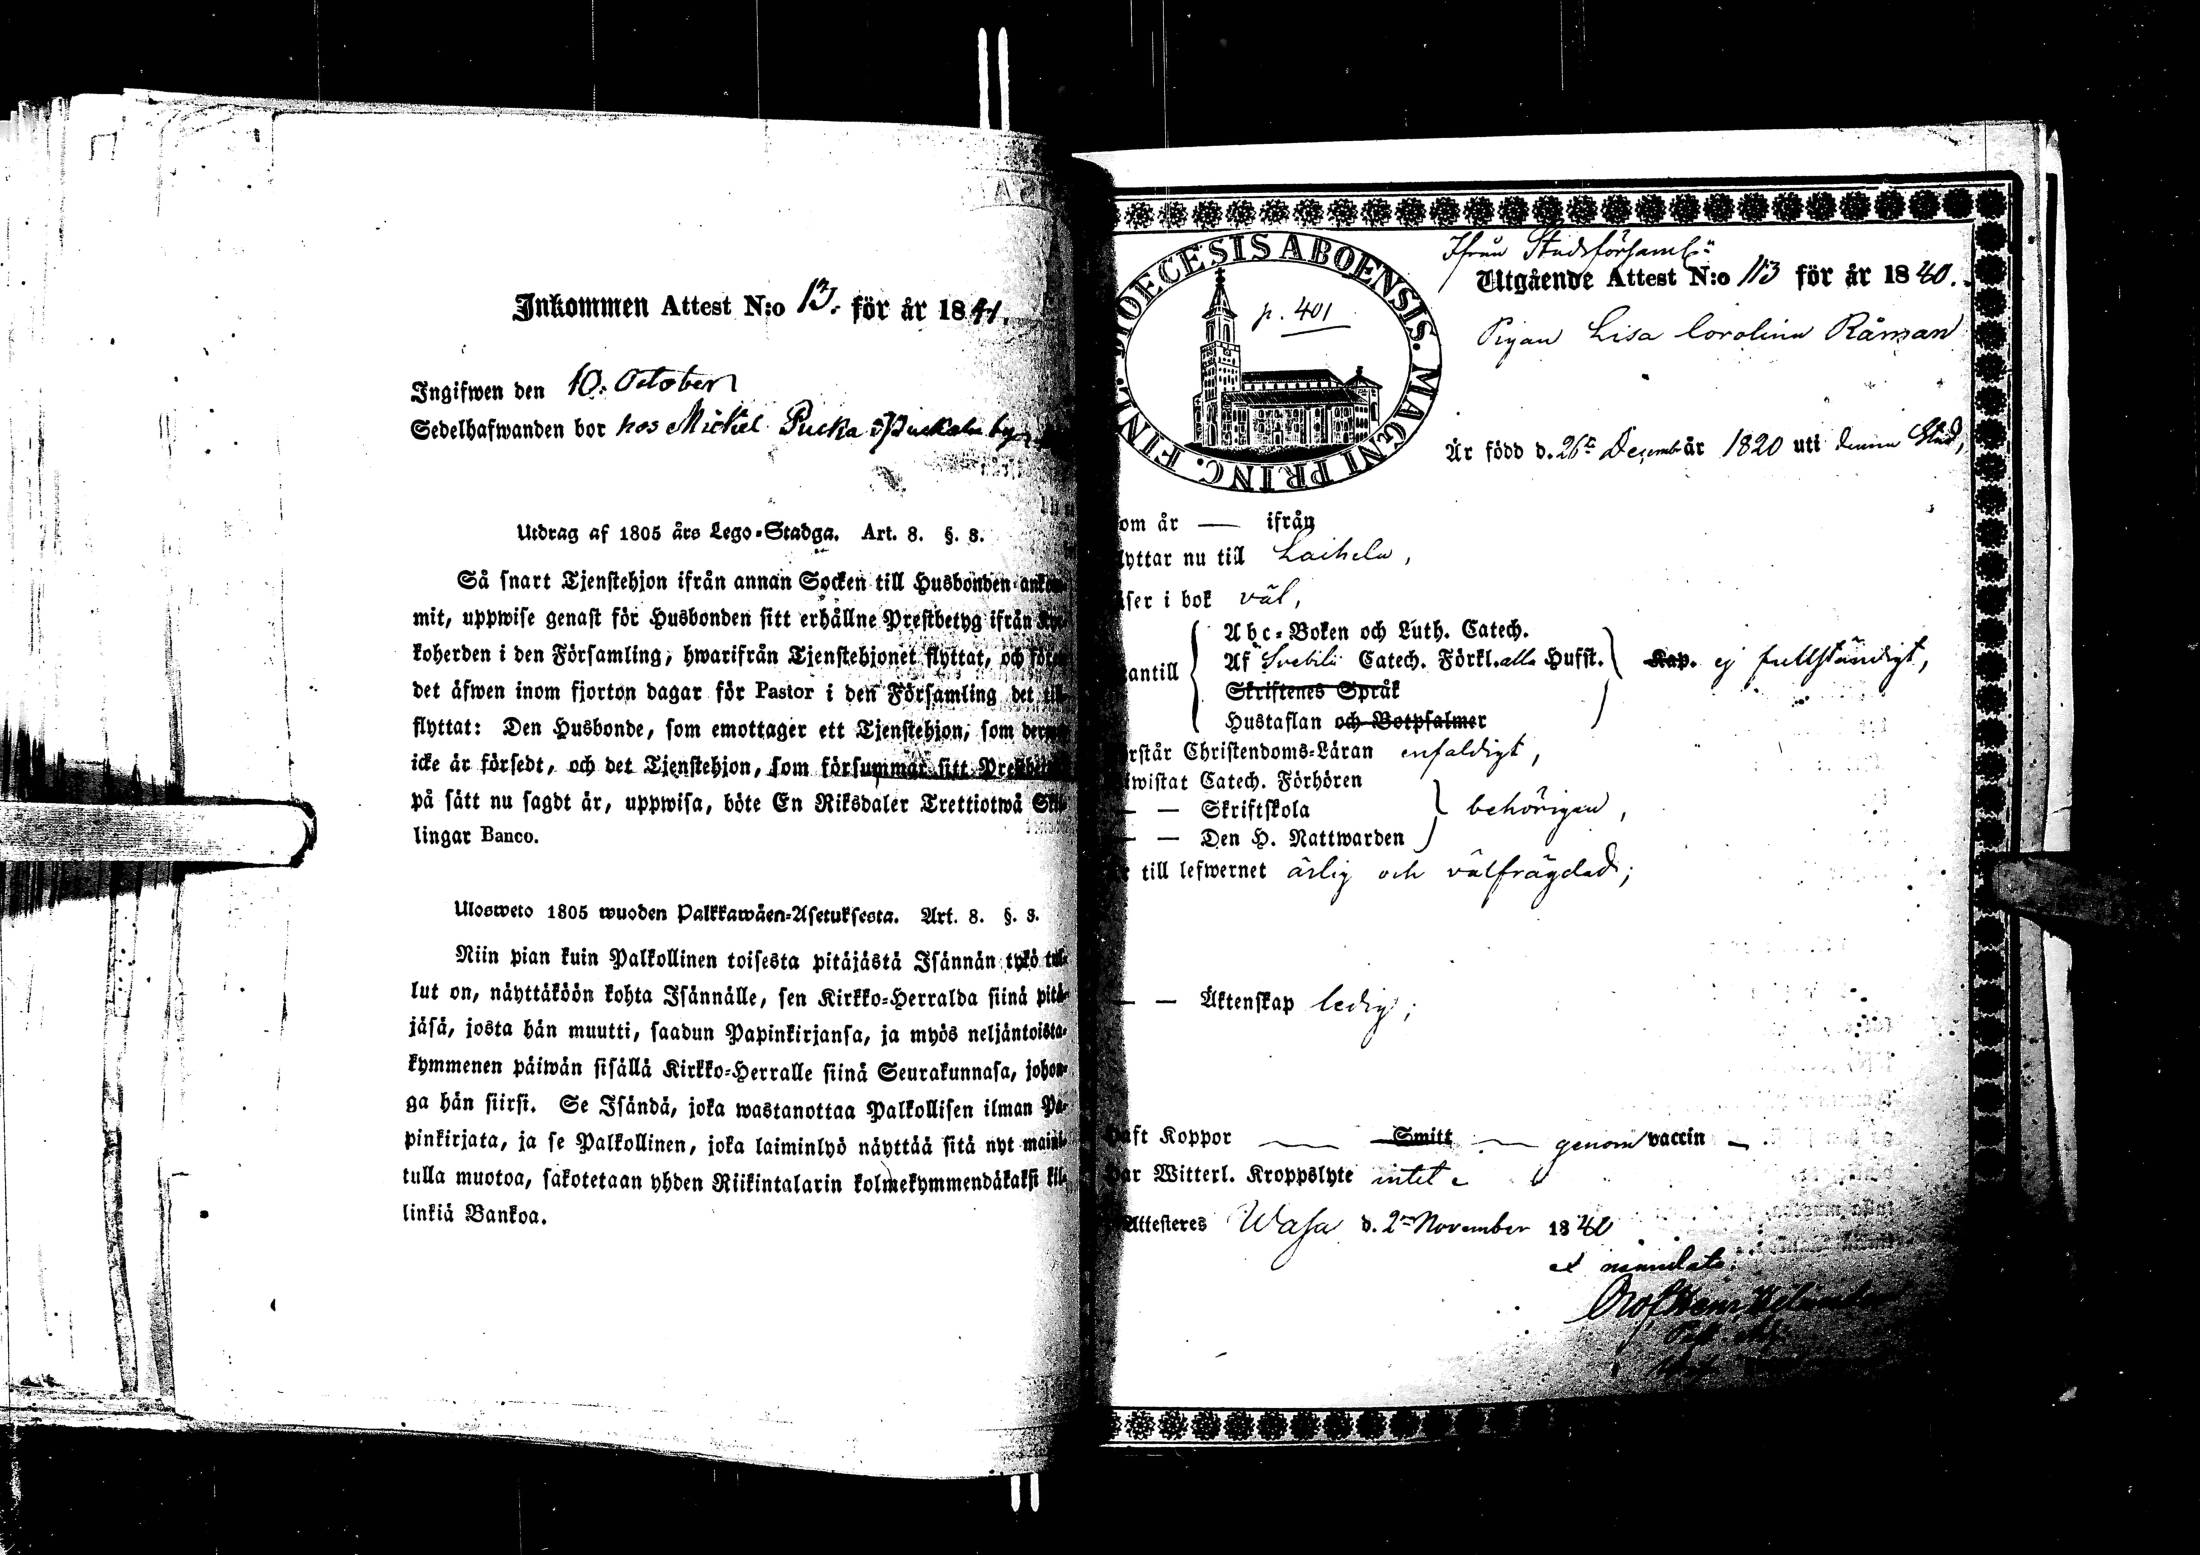 Inkommen Attest N:o 13. för år 1841.
Ingifwen den 10. October
Sedelhafwanden bor hos Mickel Pucka i Puckala by
Utdrag af 1805 års Lego-Stadga. Art. 8. §. 3.
Så snart Tjenstehjon ifrån annan Socken till Husbonden ankom-
mit, uppwise genast för Husbonden sitt erhållne Prestbetyg ifrån Kyr-
koherden i den Församling, hwarifrån Tjenstehjonet flyttat, och före
det äfwen inom fjorton dagar för Pastor i den Församling det till-
flyttat: Den Husbonde, som emottager ett Tjenstehjon, som dermed
icke är försedt, och det Tjenstehjon, som försummar sitt Prestbetyg
på sätt nu sagdt är, uppwisa, böte En Riksdaler Trettiotwå Skil-
lingar Banco.
Ulosweto 1805 wuoden Palkkawäen-Asetuksesta. Art. 8. §. 3.
Niin pian kuin Palkollinen toisesta pitäjästä Isännän tykö tul-
lut on, näyttäköön kohta Isännälle, sen Kirkko-Herralda siinä pitä-
jäsä, josta hän muutti, saadun Papinkirjansa, ja myös neljäntoista-
kymmenen päiwän sisällä Kirkko-Herralle siinä Seurakunnasa, johon-
ga hän siirsi. Se Isändä, joka wastanottaa Palkollisen ilman Pa-
pinkirjata, ja se Palkollinen, joka laiminlyö näyttää sitä nyt maini-
tulla muotoa, sakotetaan yhden Riikintalarin kolmekymmendäkaksi kil-
linkiä Bankoa.
DIOECESIS ABOENSIS. MAGNI PRINC. FINL.
p. 401
Ifrån Stadsförsaml:n
Utgående Attest N:o 113 för år 1840.
Pigan Lisa Carolina Råman
Är född d. 26te December år 1820 uti denna Stad,
om år — ifrån
lyttar nu till Laihela,
äser i bok väl,
Abc-Boken och Luth. Catech.
Af Svebili Catech. Förkl. alla Hufst. Kap. ej fullständigt,
antill
Skriftenes Språk
Hustaflan och Botpsalmer
rstår Christendoms-Läran enfaldigt,
wistat Catech. Förhören
— — Skriftskola behörigen,
— — Den H. Nattwarden
till lefwernet ärlig och välfrägdad;
— — Äktenskap ledig;
aft Koppor — Smitt — genom vaccin —
ar Witterl. Kroppslyte intet
Attesteres Wasa d. 2 November 1840
ex mandato: